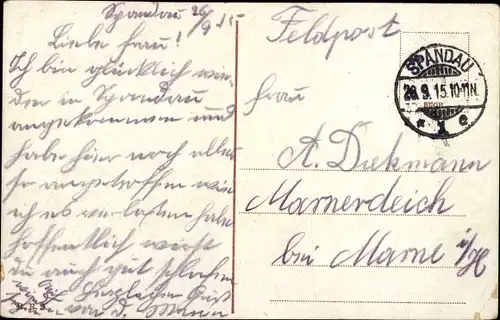 Spandau 26/9 15
Liebe Frau!
Ich bin glücklich wie
der in Spandau
angekommen und
habe hier noch alles
so angetroffen wie
ich es verlassen habe
hoffentlich wirst
du auch gut schlafen
Herzlichen Gruß
von d. Mann
Feldpost
SPANDAU
26.9.15.10-11N.
* 1 e
Frau
A. Diekmann
Marnerdeich
bei Marne i/H